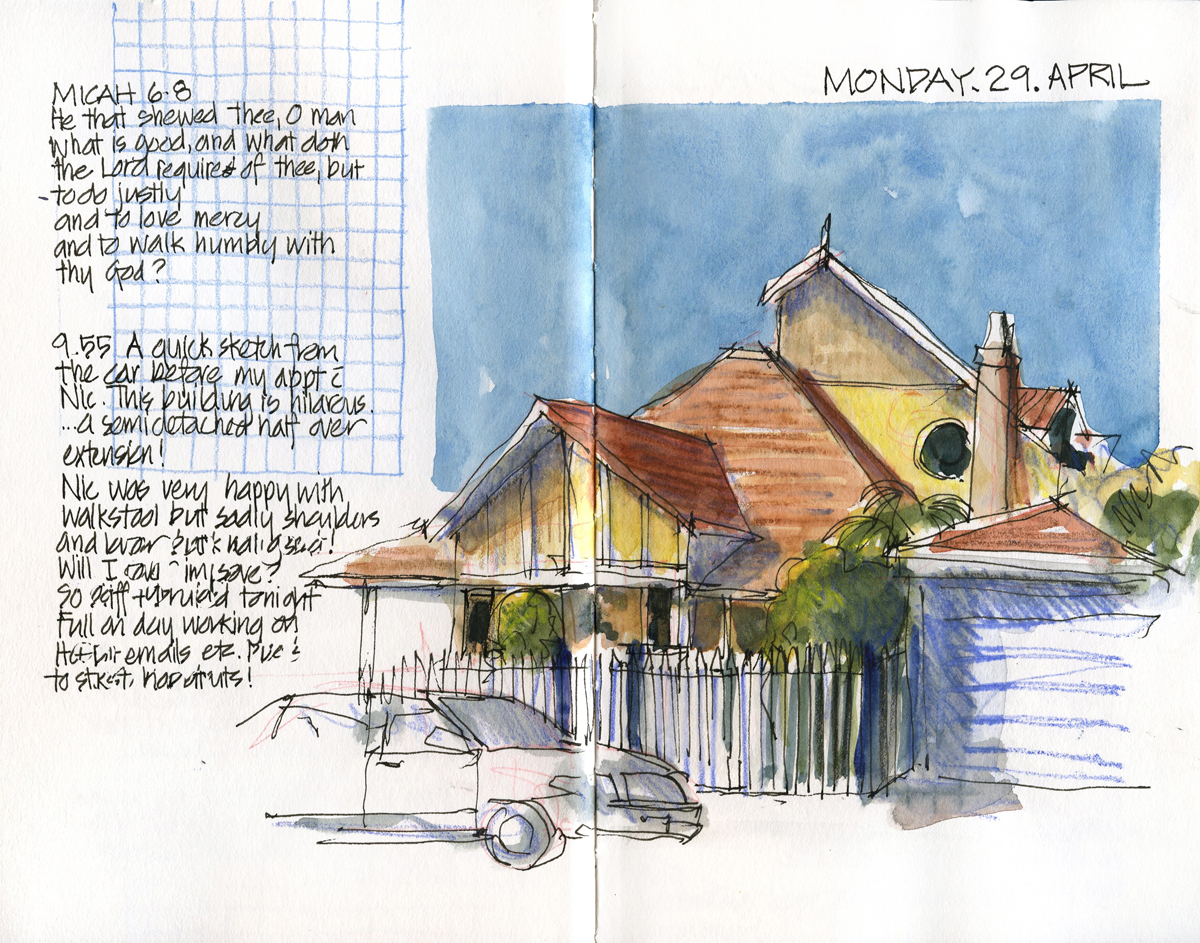 MONDAY. 29. APRIL
MICAH 6.8
He that shewed thee, O man
What is good, and what doth
the Lord require of thee, but
to do justly
and to love mercy
and to walk humbly with
thy God?
9.55 A quick sketch from
the car before my appt c̄
Nic. This building is hilarous.
...a semidetached half over
extension!
Nic was very happy with
walkstool but sadly shoulders
and
Will I
So tonight
Full on day working on
emails etc.
to